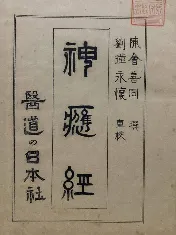 陳會善同 撰
劉瑾永懷 重校
神應經
醫道の日本社